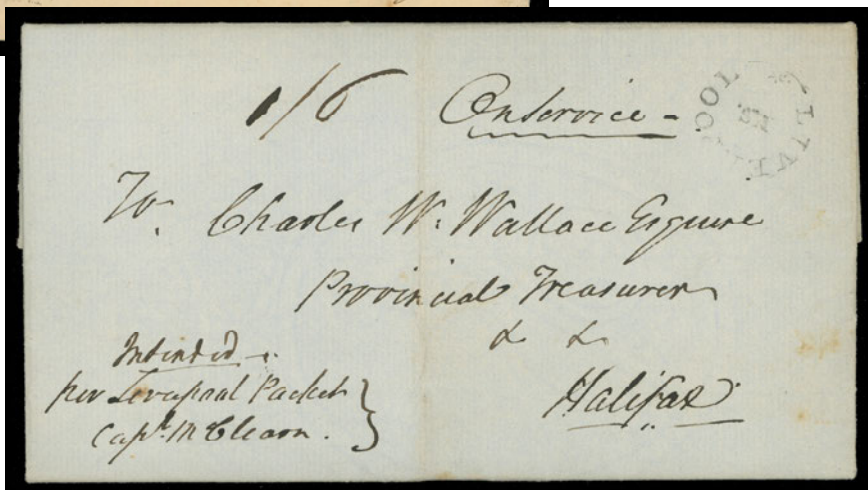 1/6 On Service -
LIVERPOOL
NS.
To. Charles W. Wallace Esquire
Provincial Treasurer
& &
Halifax
Intended
per Liverpool Packet
Capt. McClearn.